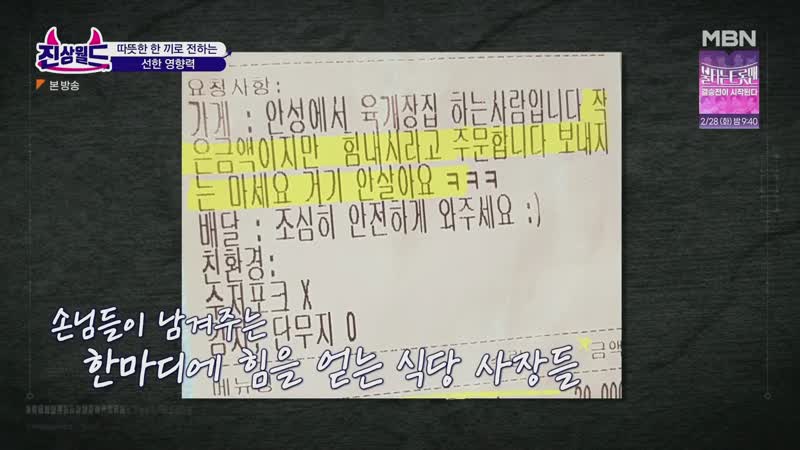 진상월드
따뜻한 한 끼로 전하는
선한 영향력
본 방송
MBN
불타는 트롯맨
결승전이 시작된다
2/28 (화) 밤 9:40
요청사항:
가게 : 안성에서 육개장집 하는사람입니다 작
은금액이지만 힘내시라고 주문합니다 보내지
는 마세요 거기 안살아요 ㅋㅋㅋ
배달 : 조심히 안전하게 와주세요 :)
친환경:
수저포크 X
단무지 O
손님들이 남겨주는
한마디에 힘을 얻는 식당 사장들
메뉴명
금액